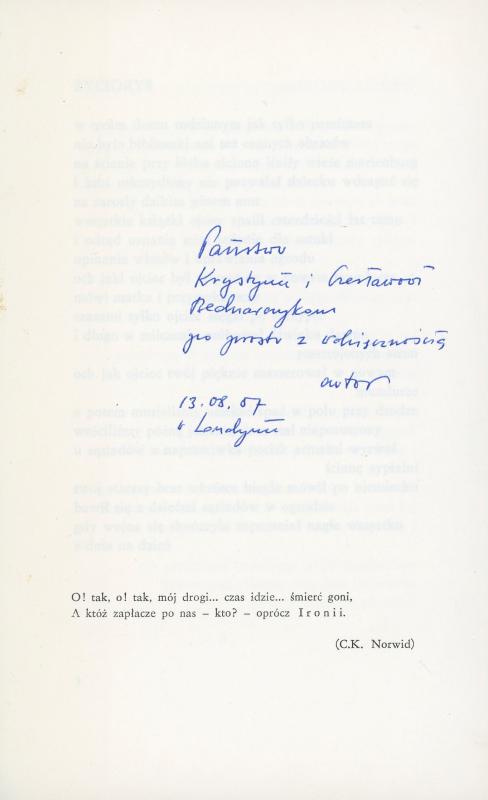 Państwu
Krystynie i Czesławowi
Bednarczykom
po prostu z wdzięcznością
autor
13.08.87
w Londynie
O! tak, o! tak, mój drogi... czas idzie... śmierć goni,
A któż zapłacze po nas – kto? – oprócz Ironii.
(C.K. Norwid)